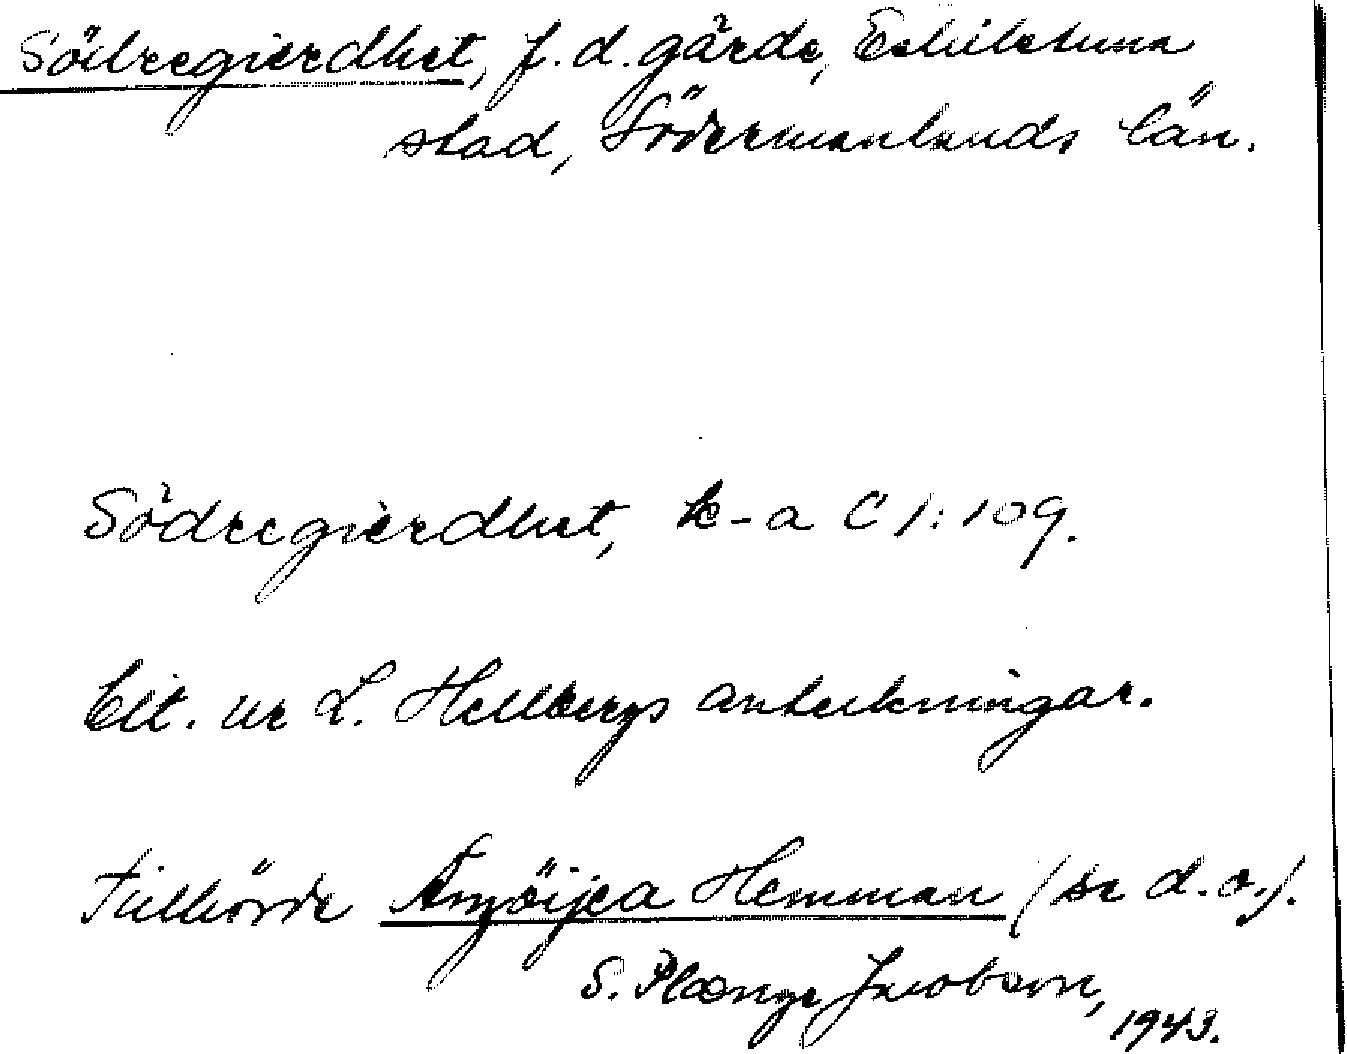 Södregierdhet, f. d. gärde, Eskilstuna
stad, Södermanlands län.
Södregierdhet, k-a C 1:109.
Cit. ur L. Hellbergs anteckningar.
Tillhörde Hemman (se d. o.).
S. Plænge Jacobson,
1943.